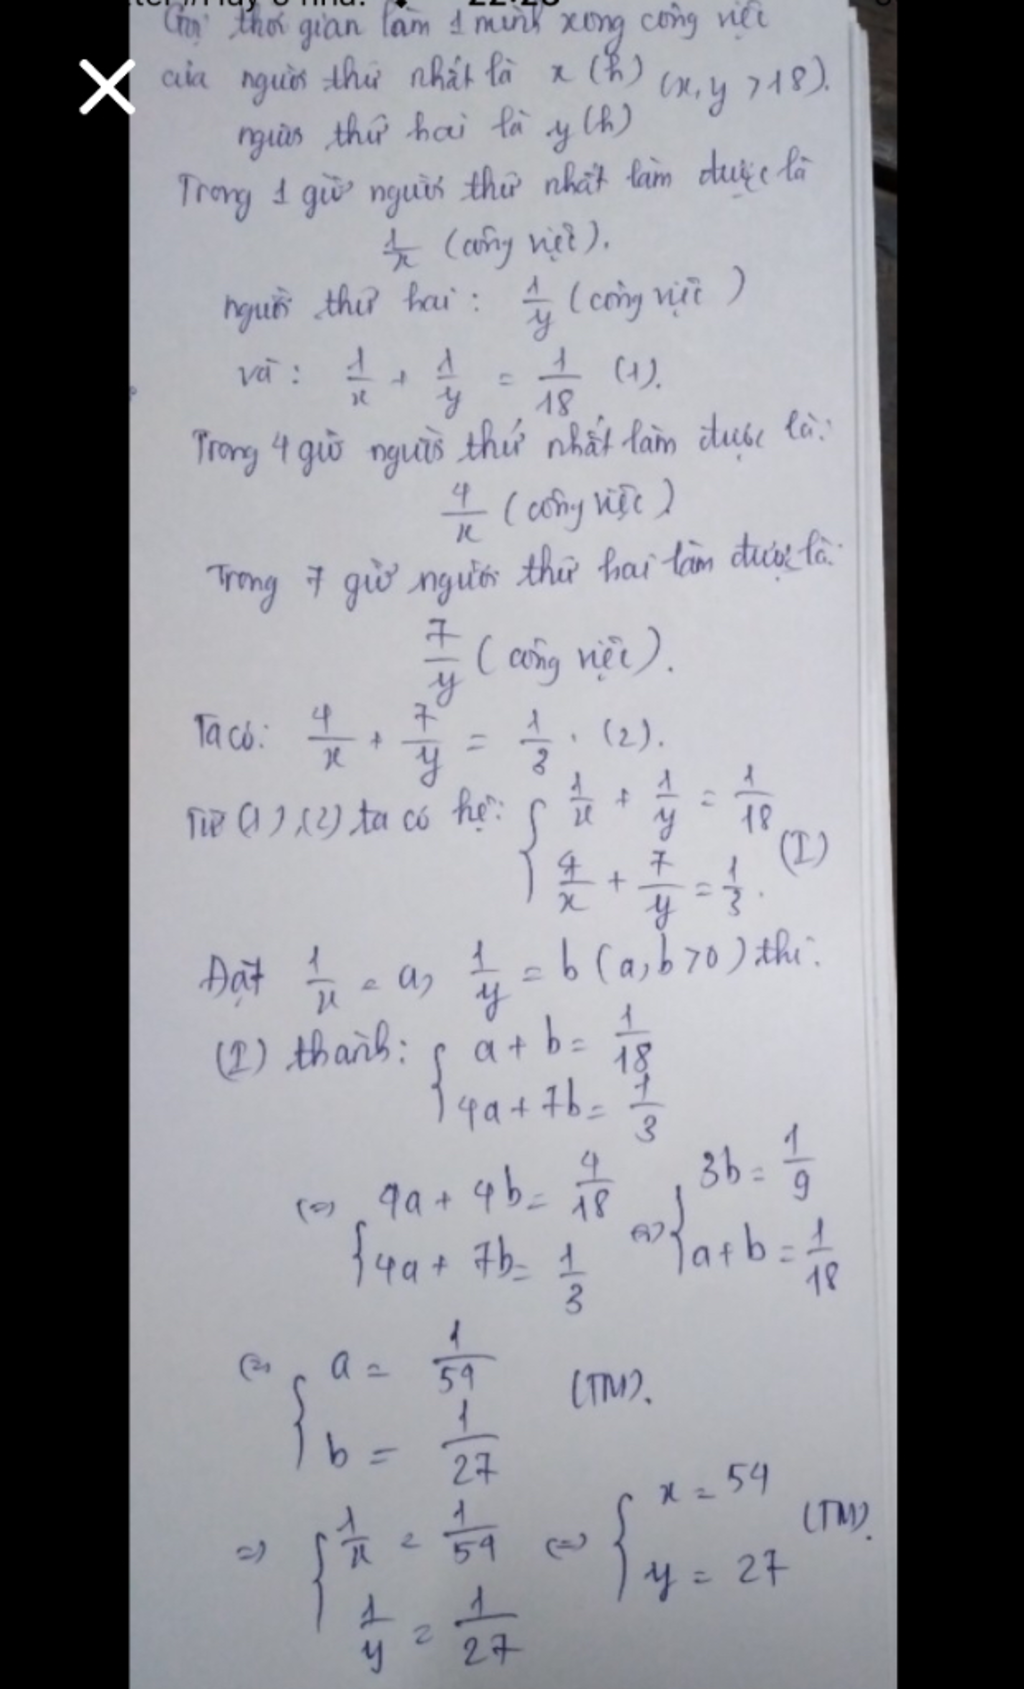 Gọi thời gian làm 1 mình xong công việc
của người thứ nhất là x (h) (x, y > 18).
người thứ hai là y (h)
Trong 1 giờ người thứ nhất làm được là
1/x (công việc).
người thứ hai: 1/y (công việc)
và: 1/x + 1/y = 1/18 (1).
Trong 4 giờ người thứ nhất làm được là:
4/x (công việc)
Trong 7 giờ người thứ hai làm được là:
7/y (công việc).
Ta có: 4/x + 7/y = 1/3. (2).
Từ (1), (2) ta có hệ: { 1/x + 1/y = 1/18
4/x + 7/y = 1/3. (I)
Đặt 1/x = a, 1/y = b (a, b > 0) thì:
(I) thành: { a + b = 1/18
4a + 7b = 1/3
(=) { 4a + 4b = 4/18 (=) { 3b = 1/9
4a + 7b = 1/3 a + b = 1/18
(=) { a = 1/54 (TM).
b = 1/27
=) { 1/x = 1/54 (=) { x = 54 (TM).
1/y = 1/27 y = 27